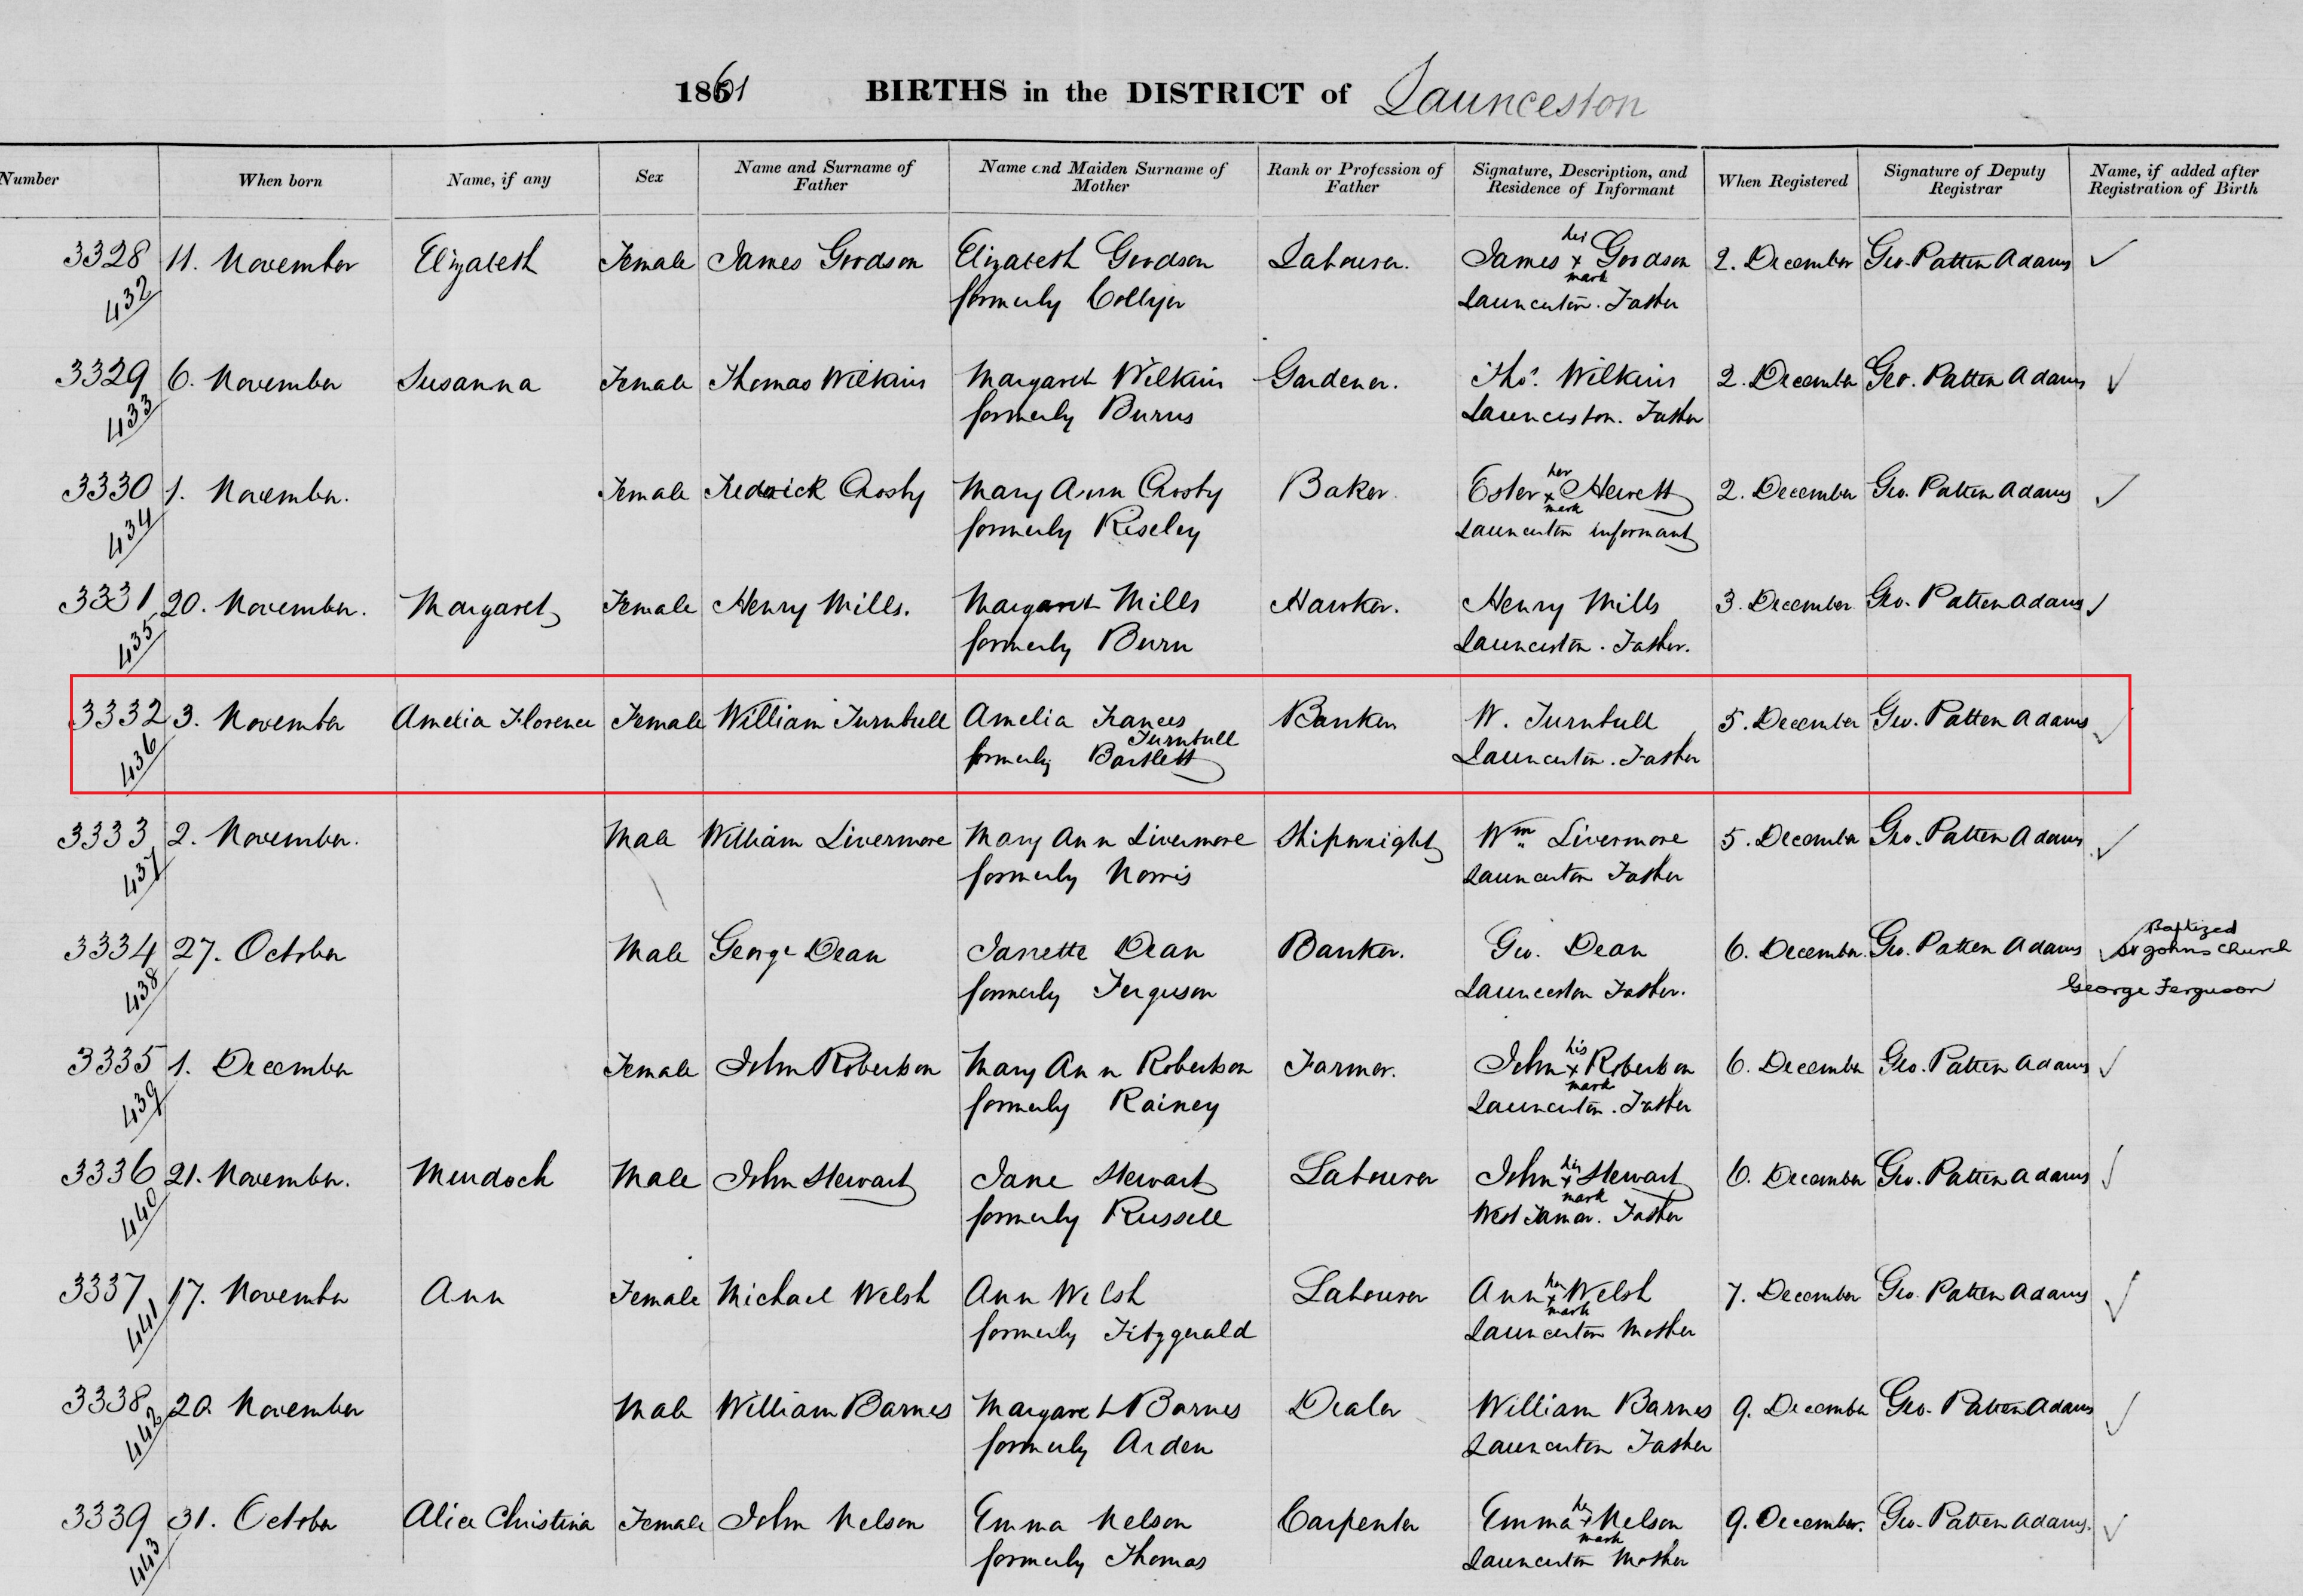 1861 BIRTHS in the DISTRICT of Launceston
Number When born Name, if any Sex Name and Surname of Father Name and Maiden Surname of Mother Rank or Profession of Father Signature, Description, and Residence of Informant When Registered Signature of Deputy Registrar Name, if added after Registration of Birth
his
3328 11. November Elizabeth Female James Goodson Elizabeth Goodson Labourer. James x Goodson 2. December Geo. Patten Adams ✓
mark
432 formerly Collyer Launceston. Father
3329 6. November Susanna Female Thomas Wilkins Margaret Wilkins Gardener. Thos. Wilkins 2. December Geo. Patten Adams ✓
433 formerly Burns Launceston. Father
her
3330 1. November. Female Frederick Crosby Mary Ann Crosby Baker. Ester x Hewett 2. December Geo. Patten Adams ✓
mark
434 formerly Riseley Launceston informant
3331 20. November. Margaret Female Henry Mills. Margaret Mills Hawker. Henry Mills 3. December Geo. Patten Adams ✓
435 formerly Burn Launceston. Father.
3332 3. November Amelia Florence Female William Turnbull Amelia Frances Banker W. Turnbull 5. December Geo. Patten Adams ✓
Turnbull
436 formerly Bartlett Launceston. Father
3333 2. November. Male William Livermore Mary Ann Livermore Shipwright Wm Livermore 5. December Geo. Patten Adams ✓
437 formerly Norris Launceston Father
Baptized
3334 27. October Male George Dean Janette Dean Banker. Geo. Dean 6. December. Geo. Patten Adams ✓ St Johns Church
438 formerly Ferguson Launceston Father. George Ferguson
his
3335 1. December Female John Robertson Mary Ann Robertson Farmer. John x Robertson 6. December Geo. Patten Adams ✓
mark
439 formerly Rainey Launceston. Father
his
3336 21. November. Murdoch Male John Stewart Jane Stewart Labourer John x Stewart 6. December Geo. Patten Adams ✓
mark
440 formerly Russell West Tamar. Father
her
3337 17. November Ann Female Michael Welsh Ann Welsh Labourer Ann x Welsh 7. December Geo. Patten Adams ✓
mark
441 formerly Fitzgerald Launceston Mother
3338 20 November Male William Barnes Margaret Barnes Dealer William Barnes 9. December Geo. Patten Adams ✓
442 formerly Arden Launceston Father
her
3339 31. October Alice Christina Female John Nelson Emma Nelson Carpenter Emma x Nelson 9. December. Geo. Patten Adams. ✓
mark
443 formerly Thomas Launceston Mother